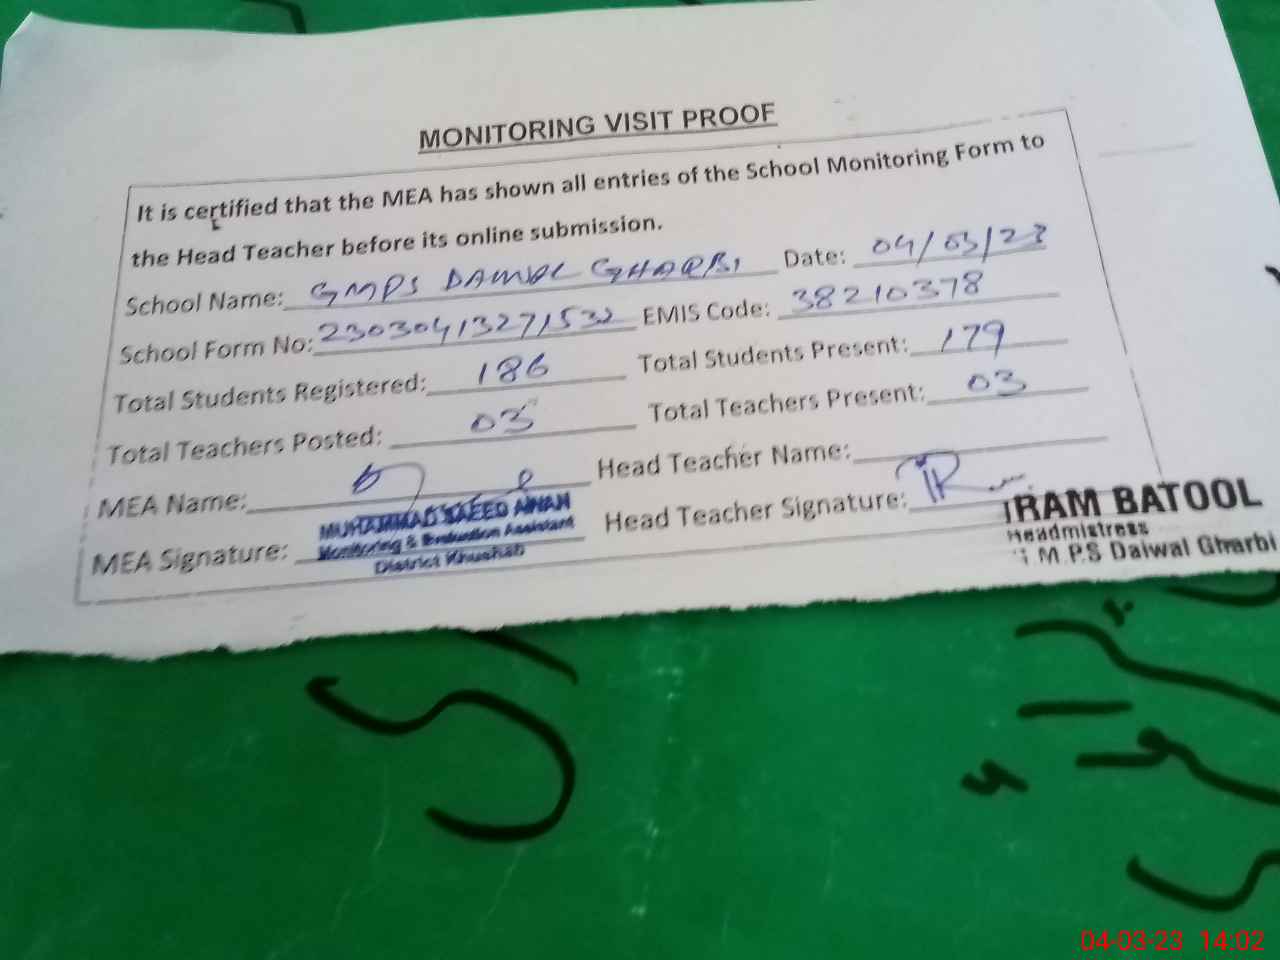 MONITORING VISIT PROOF
It is certified that the MEA has shown all entries of the School Monitoring Form to
the Head Teacher before its online submission.
School Name: GMPS DAIWAL GHARBI Date: 04/03/23
School Form No: 23030413271532 EMIS Code: 38210378
Total Students Registered: 186 Total Students Present: 179
Total Teachers Posted: 03 Total Teachers Present: 03
MEA Name: Head Teacher Name:
MEA Signature: Head Teacher Signature:
MUHAMMAD SAEED
Monitoring & Evaluation Assistant
District Khushab
IRAM BATOOL
Headmistress
M.P.S Daiwal Gharbi
04-03-23 14:02